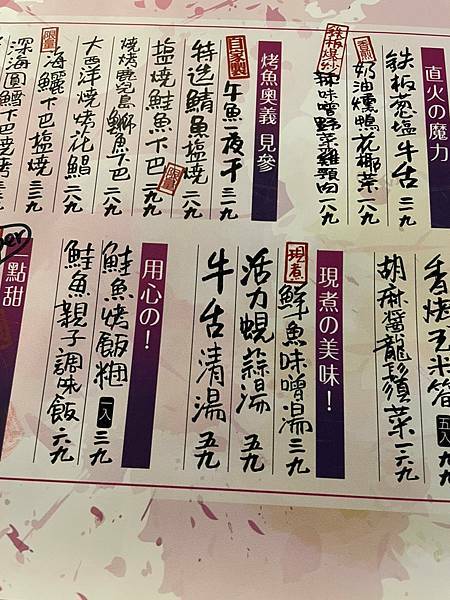 直火の魔力
鉄板蔥塩牛舌 三一九
香煎
奶油燻鴨花椰菜 一八九
鉄板爆炒
辣味噌野菜雞頸肉 一八九
烤魚奧義 見參
自家製
午魚一夜干 三一九
特选鯖魚塩燒 二八九
塩燒鮭魚下巴 二八九
限量
燒烤鹿兒島鰤魚下巴 二八九
大西洋燒烤花鯧 二八九
限量
海鱺下巴塩燒 三二九
深海圓鱈下巴
香烤玉米筍 五入 九九
胡麻醬龍鬚菜 一二九
現煮の美味!
現煮
鮮魚味噌湯 三九
活力蜆蒜湯 五九
牛舌清湯 五九
用心の!
鮭魚烤飯糰 一入 三九
鮭魚親子調味飯 六九
一點甜